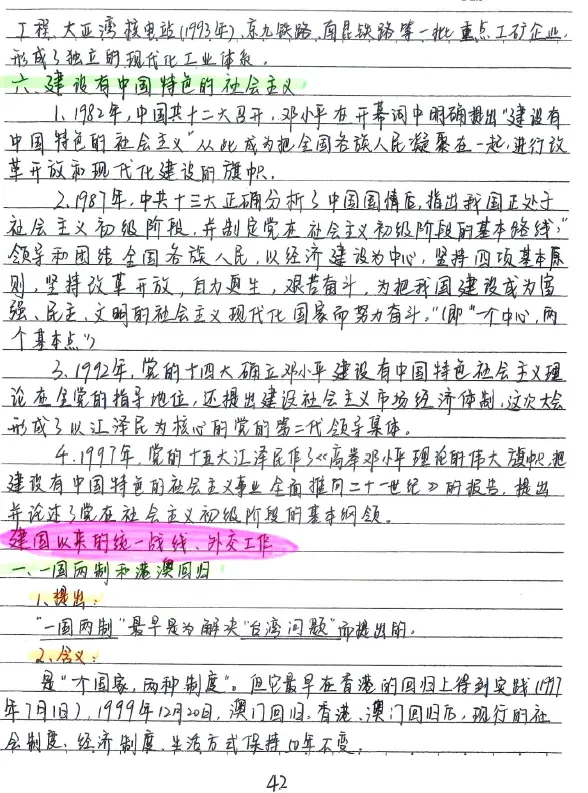 工程、大亚湾核电站(1993年)、京九铁路、南昆铁路等一批重点工矿企业,
形成了独立的现代化工业体系。
六、建设有中国特色的社会主义
1、1982年,中国共十二大召开,邓小平在开幕词中明确提出"建设有
中国特色的社会主义"从此成为把全国各族人民凝聚在一起,进行改
革开放和现代化建设的旗帜。
2、1987年,中共十三大正确分析了中国国情后,指出我国正处于
社会主义初级阶段,并制定党在社会主义初级阶段的基本路线:"
领导和团结全国各族人民,以经济建设为中心,坚持四项基本原
则,坚持改革开放,自力更生,艰苦奋斗,为把我国建设成为富
强、民主、文明的社会主义现代化国家而努力奋斗。"(即"一个中心,两
个基本点")
3、1992年,党的十四大确立邓小平建设有中国特色社会主义理
论在全党的指导地位,还提出建设社会主义市场经济体制,这次大会
形成了以江泽民为核心的党的第二代领导集体。
4、1997年,党的十五大江泽民作了《高举邓小平理论的伟大旗帜,把
建设有中国特色的社会主义事业全面推向二十一世纪》的报告,提出
并论述了党在社会主义初级阶段的基本纲领。
建国以来的统一战线、外交工作
一、一国两制和港澳回归
1、提出:
"一国两制"最早是为解决"台湾问题"而提出的。
2、含义:
是"一个国家,两种制度"。但它最早在香港的回归上得到实践(1997
年7月1日),1999年12月20日,澳门回归。香港、澳门回归后,现行的社
会制度、经济制度、生活方式保持50年不变。
42